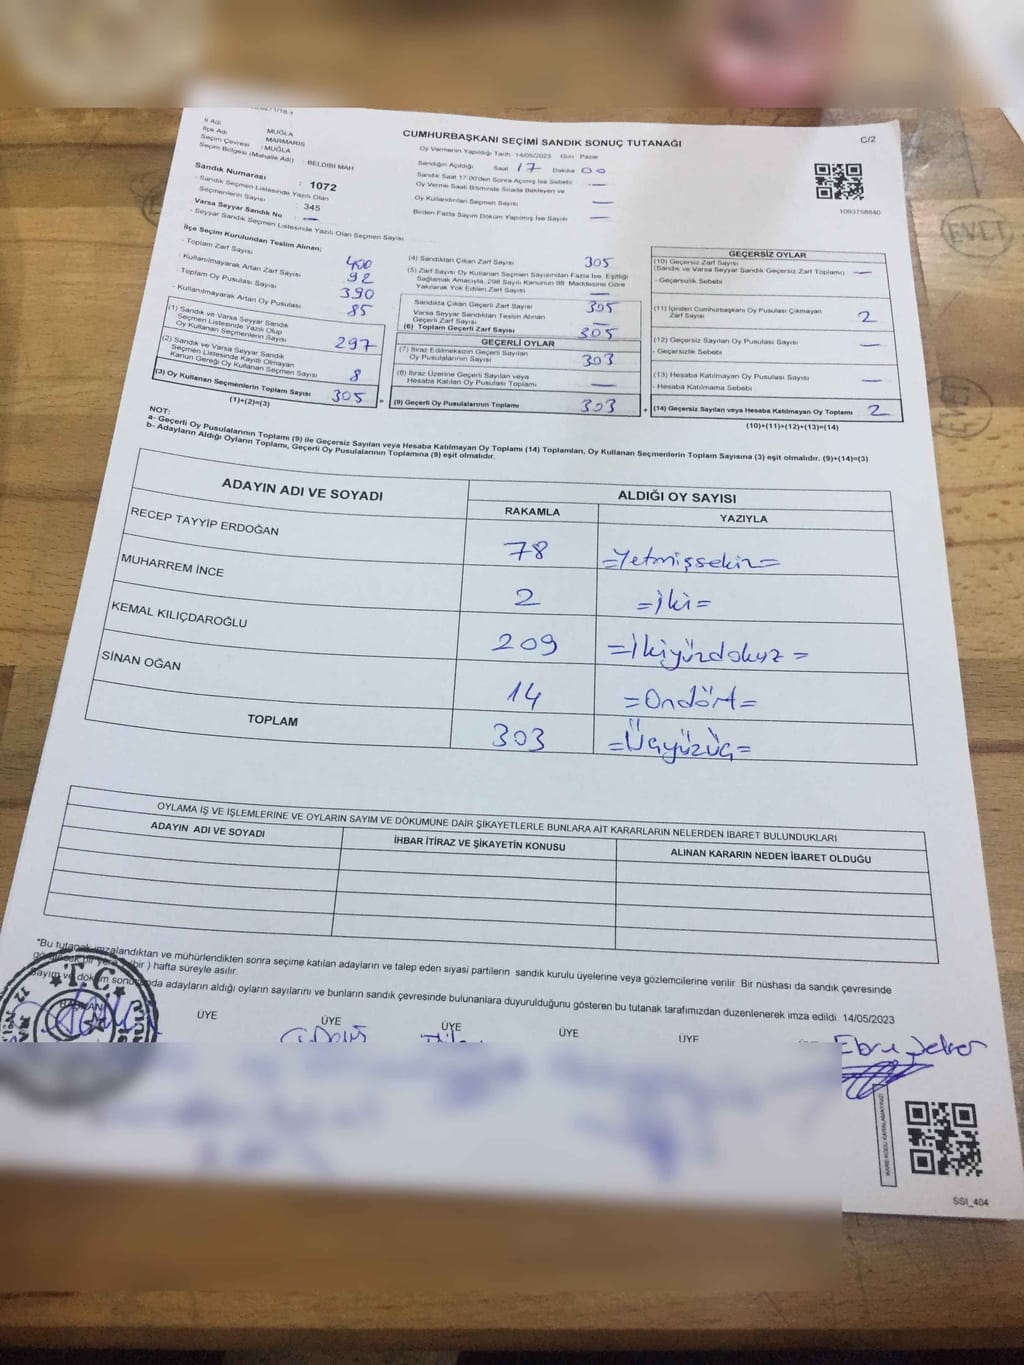 İl Adı
İlçe Adı MUĞLA
Seçim Çevresi MARMARİS
Seçim Bölgesi (Mahalle Adı) : MUĞLA
: BELDİBİ MAH
Sandık Numarası : 1072
- Sandık Seçmen Listesinde Yazılı Olan
Seçmenlerin Sayısı : 345
Varsa Seyyar Sandık No : —
- Seyyar Sandık Seçmen Listesinde Yazılı Olan Seçmen Sayısı
CUMHURBAŞKANI SEÇİMİ SANDIK SONUÇ TUTANAĞI
C/2
Oy Vermenin Yapıldığı Tarih :14/05/2023 Gün : Pazar
Sandığın Açıldığı Saat 17 Dakika 00
Sandık Saat 17:00'den Sonra Açılmış İse Sebebi —
Oy Verme Saati Bitiminde Sırada Bekleyen ve
Oy Kullandırılan Seçmen Sayısı —
Birden Fazla Sayım Döküm Yapılmış İse Sayısı —
1093758640
İlçe Seçim Kurulundan Teslim Alınan:
- Toplam Zarf Sayısı 400
- Kullanılmayarak Artan Zarf Sayısı 92
- Toplam Oy Pusulası Sayısı 390
- Kullanılmayarak Artan Oy Pusulası 85
(1) Sandık ve Varsa Seyyar Sandık
Seçmen Listesinde Yazılı Olup
Oy Kullanan Seçmenlerin Sayısı 297
(2) Sandık ve Varsa Seyyar Sandık
Seçmen Listesinde Kayıtlı Olmayan
Kanun Gereği Oy Kullanan Seçmen Sayısı 8
(3) Oy Kullanan Seçmenlerin Toplam Sayısı 305
(1)+(2)=(3)
(4) Sandıktan Çıkan Zarf Sayısı 305
(5) Zarf Sayısı Oy Kullanan Seçmen Sayısından Fazla İse, Eşitliği
Sağlamak Amacıyla, 298 Sayılı Kanunun 98. Maddesine Göre
Yakılarak Yok Edilen Zarf Sayısı —
Sandıkta Çıkan Geçerli Zarf Sayısı 305
Varsa Seyyar Sandıktan Teslim Alınan
Geçerli Zarf Sayısı —
(6) Toplam Geçerli Zarf Sayısı 305
GEÇERLİ OYLAR
(7) İtiraz Edilmeksizin Geçerli Sayılan
Oy Pusulalarının Sayısı 303
(8) İtiraz Üzerine Geçerli Sayılan veya
Hesaba Katılan Oy Pusulası Toplamı —
= (9) Geçerli Oy Pusulalarının Toplamı 303
GEÇERSİZ OYLAR
(10) Geçersiz Zarf Sayısı
(Sandık ve Varsa Seyyar Sandık Geçersiz Zarf Toplamı) —
- Geçersizlik Sebebi
(11) İçinden Cumhurbaşkanı Oy Pusulası Çıkmayan
Zarf Sayısı 2
(12) Geçersiz Sayılan Oy Pusulası Sayısı —
- Geçersizlik Sebebi
(13) Hesaba Katılmayan Oy Pusulası Sayısı —
- Hesaba Katılmama Sebebi
+ (14) Geçersiz Sayılan veya Hesaba Katılmayan Oy Toplamı 2
(10)+(11)+(12)+(13)=(14)
NOT:
a- Geçerli Oy Pusulalarının Toplamı (9) ile Geçersiz Sayılan veya Hesaba Katılmayan Oy Toplamı (14) Toplamları, Oy Kullanan Seçmenlerin Toplam Sayısına (3) eşit olmalıdır. (9)+(14)=(3)
b- Adayların Aldığı Oyların Toplamı, Geçerli Oy Pusulalarının Toplamına (9) eşit olmalıdır.
ADAYIN ADI VE SOYADI ALDIĞI OY SAYISI
RAKAMLA YAZIYLA
RECEP TAYYİP ERDOĞAN 78 =Yetmişsekiz=
MUHARREM İNCE 2 =İki=
KEMAL KILIÇDAROĞLU 209 =İkiyüzdokuz=
SİNAN OĞAN 14 =Ondört=
TOPLAM 303 =Üçyüzüç=
OYLAMA İŞ VE İŞLEMLERİNE VE OYLARIN SAYIM VE DÖKÜMÜNE DAİR ŞİKAYETLERLE BUNLARA AİT KARARLARIN NELERDEN İBARET BULUNDUKLARI
ADAYIN ADI VE SOYADI İHBAR İTİRAZ VE ŞİKAYETİN KONUSU ALINAN KARARIN NEDEN İBARET OLDUĞU
"Bu tutanak imzalandıktan ve mühürlendikten sonra seçime katılan adayların ve talep eden siyasi partilerin sandık kurulu üyelerine veya gözlemcilerine verilir .Bir nüshası da sandık çevresinde
bir yere (bir ) hafta süreyle asılır.
Sayım ve döküm sonucunda adayların aldığı oyların sayılarını ve bunların sandık çevresinde bulunanlara duyurulduğunu gösteren bu tutanak tarafımızdan düzenlenerek imza edildi. 14/05/2023
BAŞKAN ÜYE ÜYE ÜYE ÜYE ÜYE
T.C.
Ebru Şeker
SSI_404
EVET
EVET